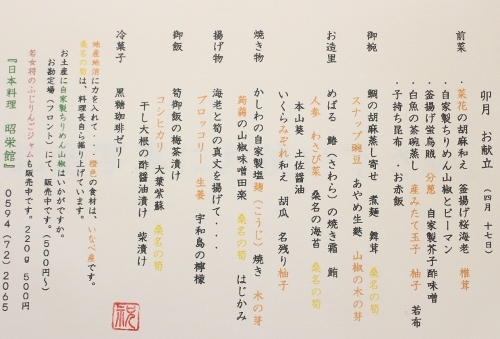 卯月 お献立 (四月 十七日)
前菜 ・菜花の胡麻和え 釜揚げ桜海老 椎茸
・自家製ちりめん山椒とピーマン
・釜揚げ蛍烏賊 分葱 自家製芥子酢味噌
・白魚の茶碗蒸し 産みたて玉子 柚子 若布
・子持ち昆布 ・お赤飯
御椀 鯛の胡麻蒸し寄せ 煮麺 舞茸 桑名の筍
スナップ豌豆 あやめ生麩 山椒の木の芽
お造里 めばる 鰆(さわら)の焼き霜 鮪
人参 わさび菜 桑名の海苔 桑名の筍
本山葵 土佐醤油
いくらみぞれ和え 胡瓜 名残り柚子
焼き物 かしわの自家製塩麹(こうじ)焼き 木の芽
蒟蒻の山椒味噌田楽 桑名の筍 はじかみ
揚げ物 海老と筍の真丈を揚げて・・・
ブロッコリー 生姜 宇和島の檸檬
御飯 筍御飯の梅茶漬け
コシヒカリ 大葉紫蘇 桑名の筍
干し大根の酢醤油漬け 柴漬け
冷菓子 黒糖珈琲ゼリー
地産地消に力を入れて・・・橙色の食材は、いなべ産です。
桑名の筍は、料理長自ら掘り上げています。
お土産に自家製ちりめん山椒はいかがですか。
お勘定場(フロント)にて、販売中です。(500円〜)
若女将のふじりんごジャムも販売中です。220g 500円
『日本料理 昭栄館』 0594(72)2065